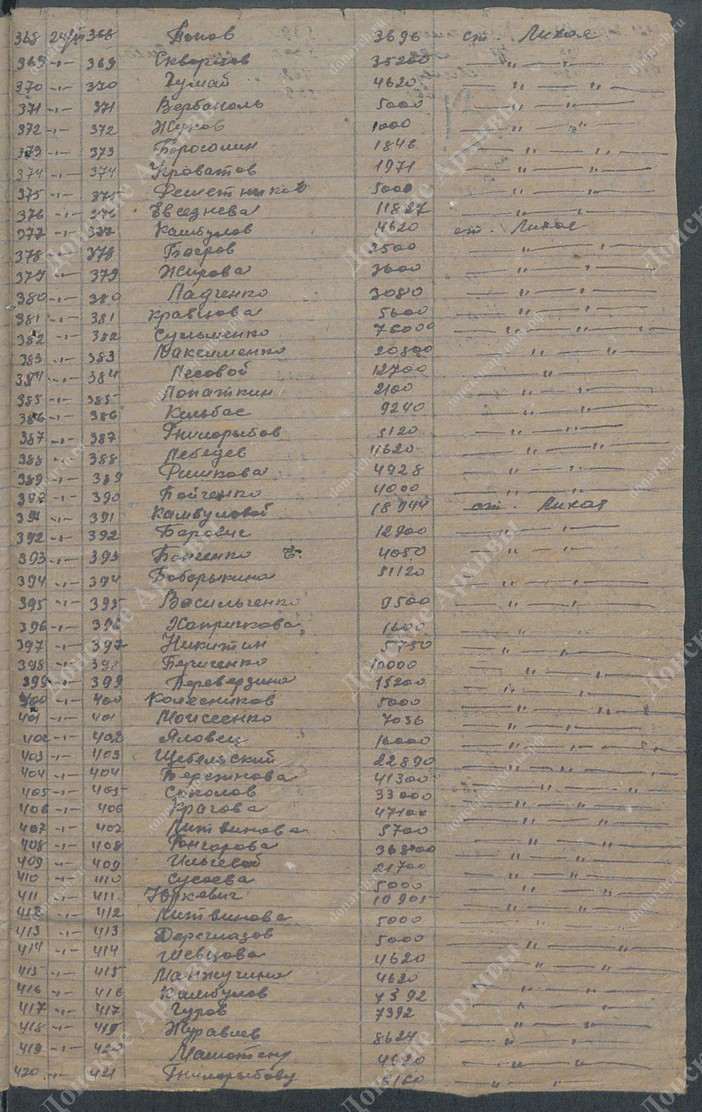 368 24/VII 368 Попов 3696 ст. Лихая
369 -"- 369 Скворцов 35200 — " — "
370 -"- 370 Чумай 4620 — " — "
371 -"- 371 5000 — " — "
372 -"- 372 Жуков 1000 — " — "
373 -"- 373 1848 — " — "
374 -"- 374 1971 — " — "
375 -"- 375 Решетников 5000 — " — "
376 -"- 376 Евседнева 11827 — " — "
377 -"- 377 Камбулов 4620 ст. Лихая
378 -"- 378 2500 — " — "
379 -"- 379 Жирова 3600 — " — "
380 -"- 380 Ладченко 3080 — " — "
381 -"- 381 Кравцова 5600 — " — "
382 -"- 382 Сушьменко 76000 — " — "
383 -"- 383 Максименко 20800 — " — "
384 -"- 384 Лесовой 12700 — " — "
385 -"- 385 Лопаткин 2100 — " — "
386 -"- 386 Кильбас 9240 — " — "
387 -"- 387 Гнилорыбов 5120 — " — "
388 -"- 388 Лебедев 11620 — " — "
389 -"- 389 Фишкова 4928 — " — "
390 -"- 390 Бойченко 4000 — " — "
391 -"- 391 Камбуловой 18944 ст. Лихая
392 -"- 392 12900 — " — "
393 -"- 393 Бойченко Е. 4080 — " — "
394 -"- 394 Боборыкина 51120 — " — "
395 -"- 395 Васильченко 9500 — " — "
396 -"- 396 Хапричкова 1600 — " — "
397 -"- 397 Никитин 5750 — " — "
398 -"- 398 10000 — " — "
399 -"- 399 Переверзина 15200 — " — "
400 -"- 400 Колесников 5000 — " — "
401 -"- 401 Моисеенко 7036 — " — "
402 -"- 402 Яловец 10000 — " — "
403 -"- 403 Щебельский 22890 — " — "
404 -"- 404 Бережнова 41300 — " — "
405 -"- 405 Соколов 33000 — " — "
406 -"- 406 Крагова 47100 — " — "
407 -"- 407 Литвинова 5700 — " — "
408 -"- 408 Гончарова 36800 — " — "
409 -"- 409 Ильчевой 21700 — " — "
410 -"- 410 Сусоева 5000 — " — "
411 -"- 411 Юркевич 10905 — " — "
412 -"- 412 Литвинова 5000 — " — "
413 -"- 413 Дерглазов 5000 — " — "
414 -"- 414 Шевцова 4620 — " — "
415 -"- 415 Манжучина 4620 — " — "
416 -"- 416 Камбулов 7392 — " — "
417 -"- 417 Гуров 7392 — " — "
418 -"- 419 Журавлев 8624 — " — "
419 -"- 420 4620 — " — "
420 -"- 421 Гнилорыбову 6160 — " — "